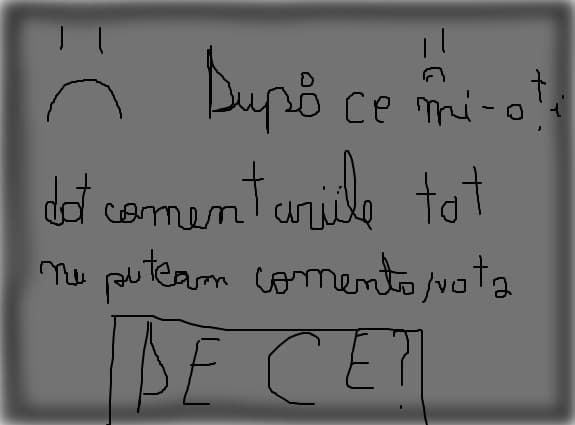 După ce mi-ați
dat comentariile tot
nu puteam comenta/vota
DE CE?